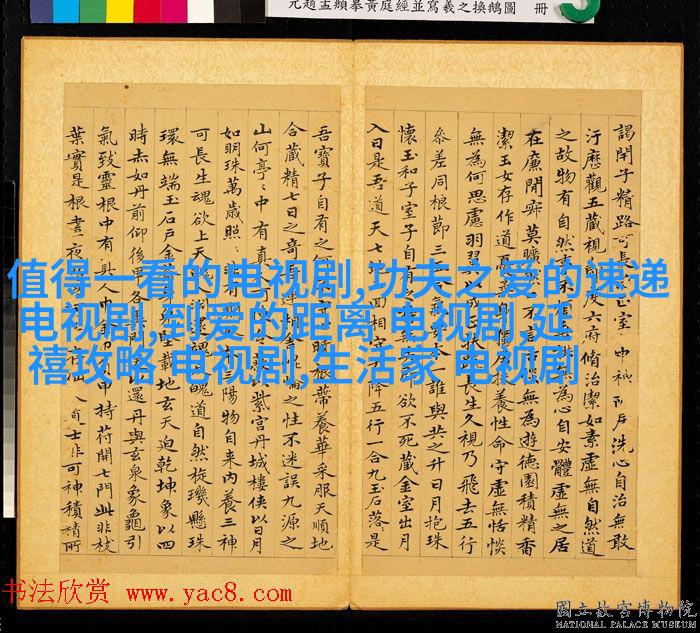 元趙孟頫摹黃庭經並寫羲之換鵝圖 冊
謁閉子精路可長 正室 中神所戶洗心自治無敢
汙歷觀五藏視 度六府脩治潔如素虛無自然道
之故物有自然事不 無為心自安體虛無之居
在廉閒寂莫曠 不言 無為遊德園積精香
潔玉女存作道憂 獨 養性命守虛無恬惔
無為何思慮羽翼以成正扶 長生久視乃飛去五行
參差同根節三 氣 本一誰與共之升日月抱珠
懷玉和子室子自有之 無 欲不死藏金室出月
入日是吾道天七地三回相守升降五行一合九玉石落是
吾寶子自有之何 守 根蔕養華采服天順地
合藏精七日之奇吾連相 崙之性不迷誤九源之
山何亭〻中有真 可 以紫宮丹城樓俠以日月
如明珠萬歲照〻非有 三陽物自來內養三神
可長生魂欲上天 淵還魂 魄道自然旋璣懸珠
環無端玉石戶金 身 堅載地玄天迫乾坤象以四
時赤如丹前仰後卑各異門 以還丹與玄泉象龜引
氣致靈根中有真人巾金巾 甲持苻開七門此非枝
葉實是根晝夜 士非可神積精所
值得一看的电视剧,功夫之爱的速递
电视剧,到爱的距离 电视剧,延
禧攻略 电视剧,生活家 电视剧
书法欣赏 www.yac8.com
國立故宮博物院
NATIONAL PALACE MUSEUM